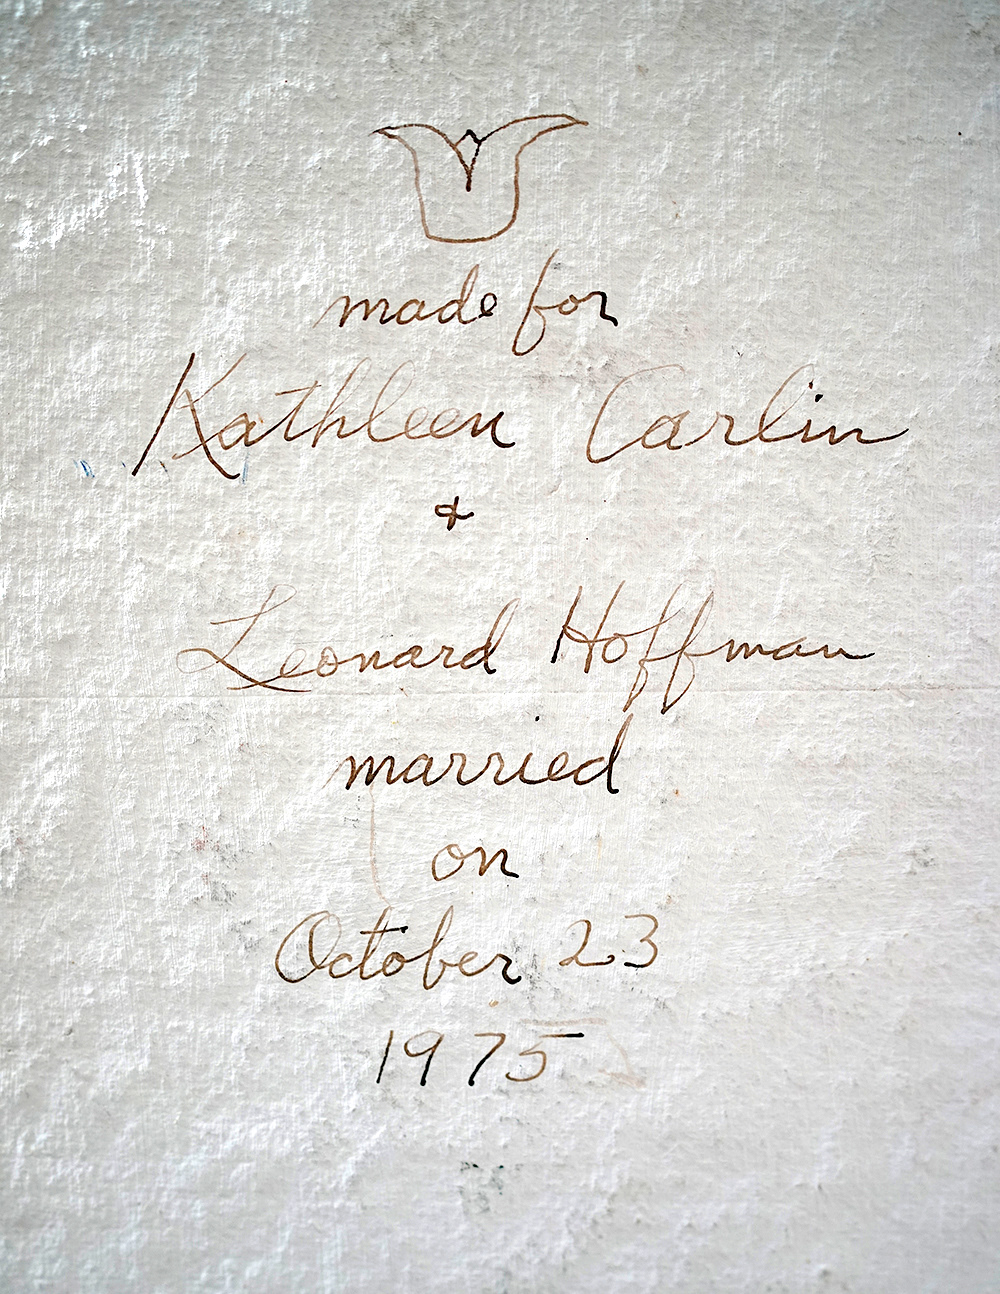 made for
Kathleen Carlin
+
Leonard Hoffman
married
on
October 23
1975